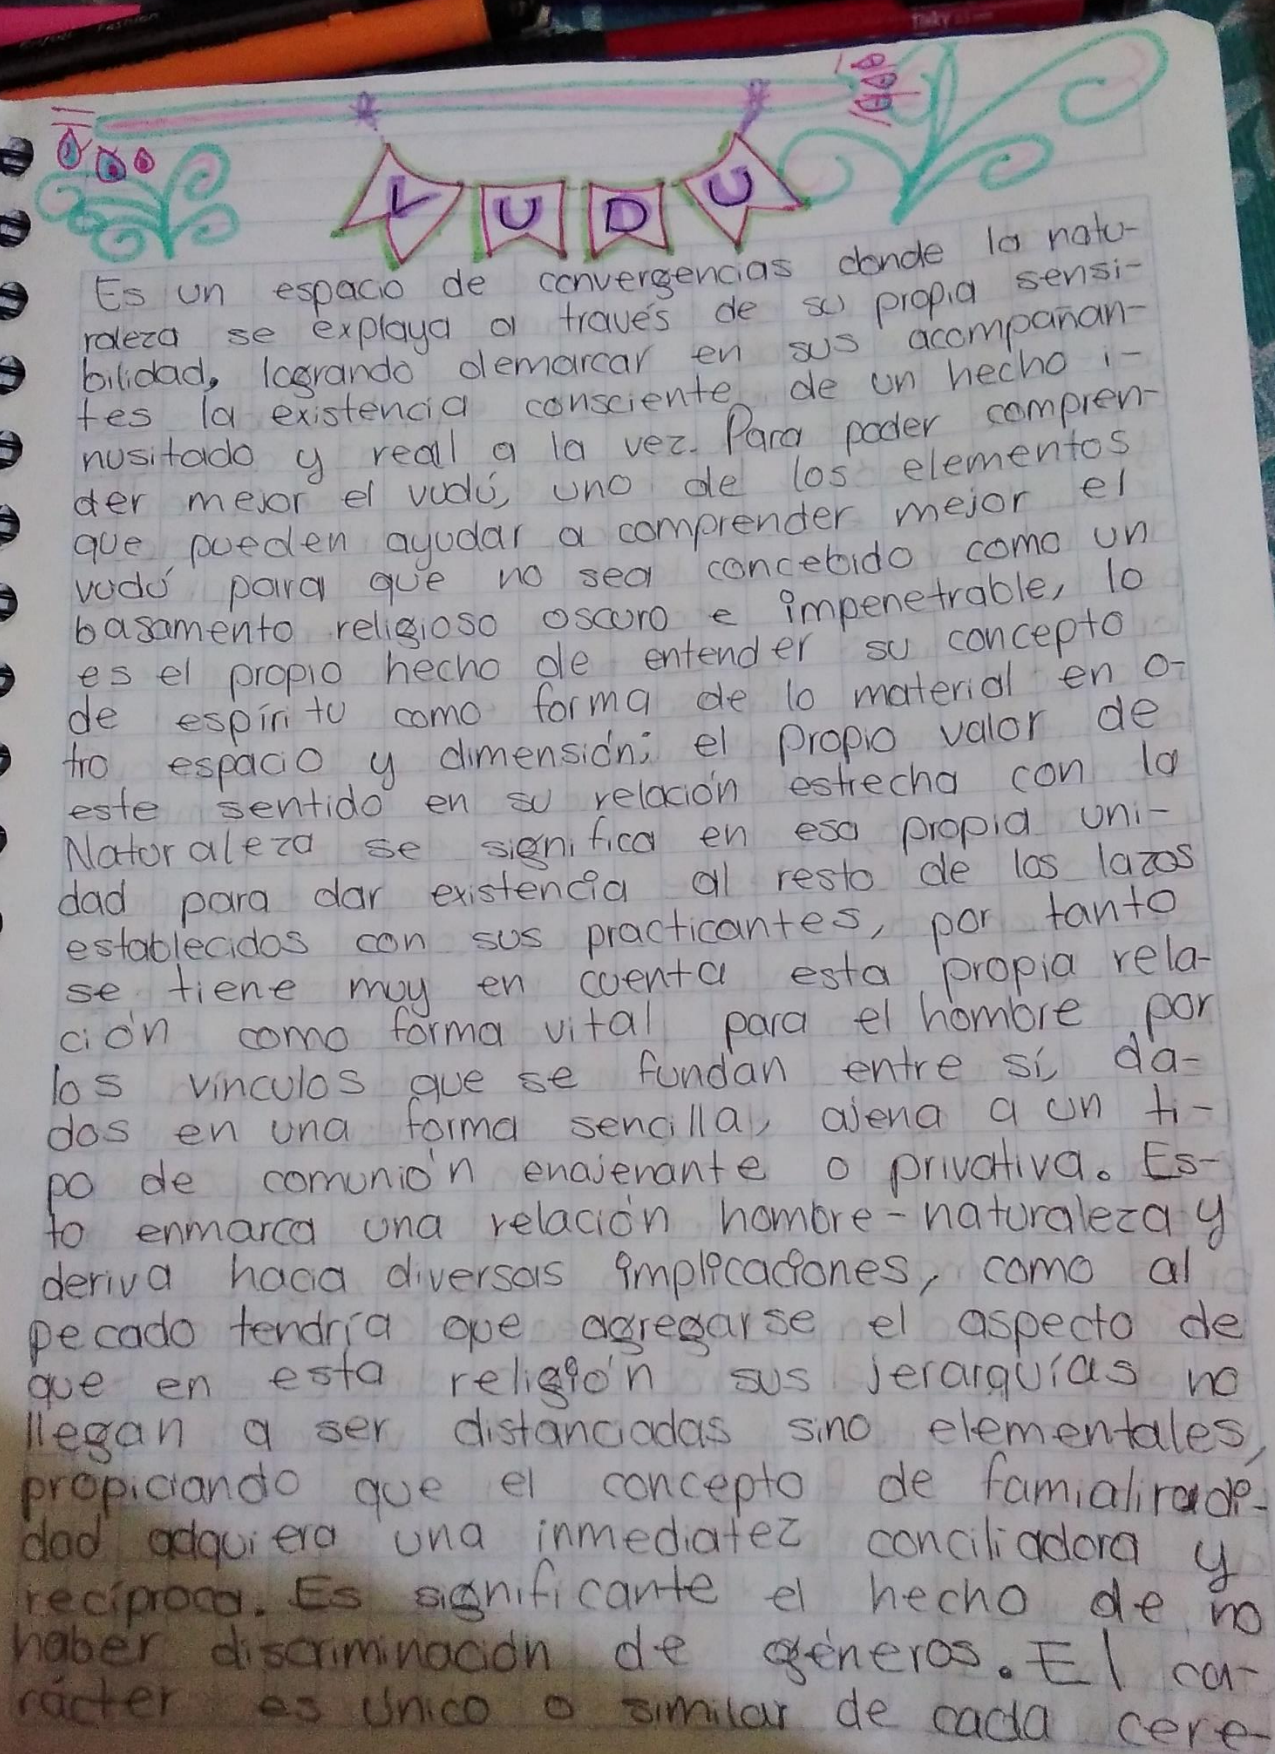 VUDU
Es un espacio de convergencias donde la natu-
raleza se explaya a través de su propia sensi-
bilidad, logrando demarcar en sus acompañan-
tes la existencia consciente de un hecho i-
nusitado y real a la vez. Para poder compren-
der mejor el vudú, uno de los elementos
que pueden ayudar a comprender mejor el
vudú para que no sea concebido como un
basamento religioso oscuro e impenetrable, lo
es el propio hecho de entender su concepto
de espíritu como forma de lo material en o-
tro espacio y dimensión; el propio valor de
este sentido en su relación estrecha con la
Naturaleza se significa en esa propia uni-
dad para dar existencia al resto de los lazos
establecidos con sus practicantes, por tanto
se tiene muy en cuenta esta propia rela-
ción como forma vital para el hombre por
los vínculos que se fundan entre sí, da-
dos en una forma sencilla, ajena a un ti-
po de comunión enajenante o privativa. Es-
to enmarca una relación hombre-naturaleza y
deriva hacia diversas implicaciones, como al
pecado tendría que agregarse el aspecto de
que en esta religión sus jerarquías no
llegan a ser distanciadas sino elementales,
propiciando que el concepto de
dad adquiera una inmediatez conciliadora y
recíproca. Es significante el hecho de no
haber discriminación de géneros. El ca-
rácter es único o similar de cada cere-